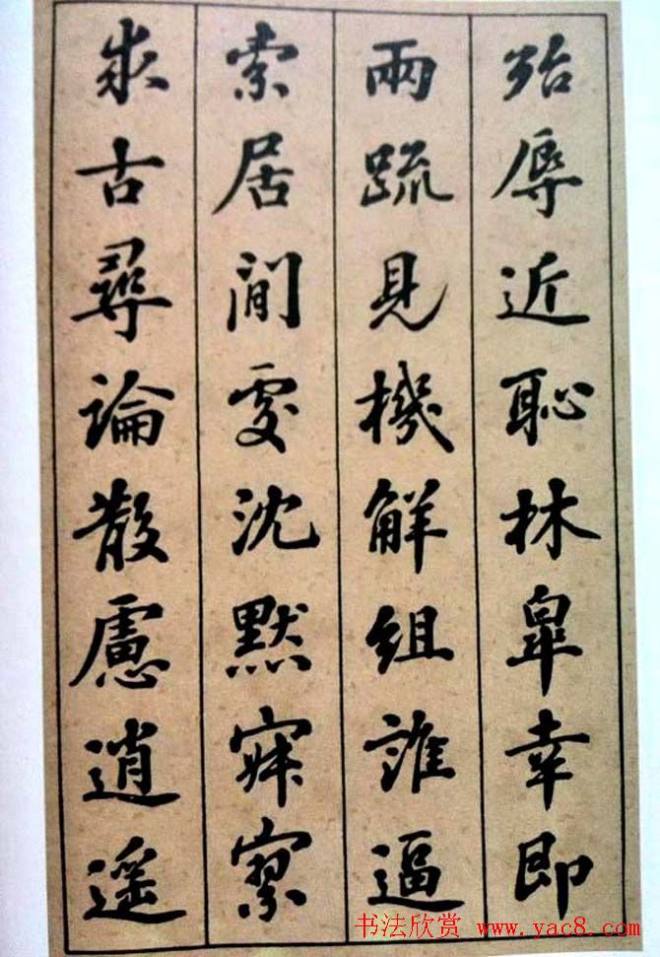 殆辱近恥林皐幸即
兩疏見機解組誰逼
索居閒處沈默寂寥
求古尋論散慮逍遥
书法欣赏 www.yac8.com